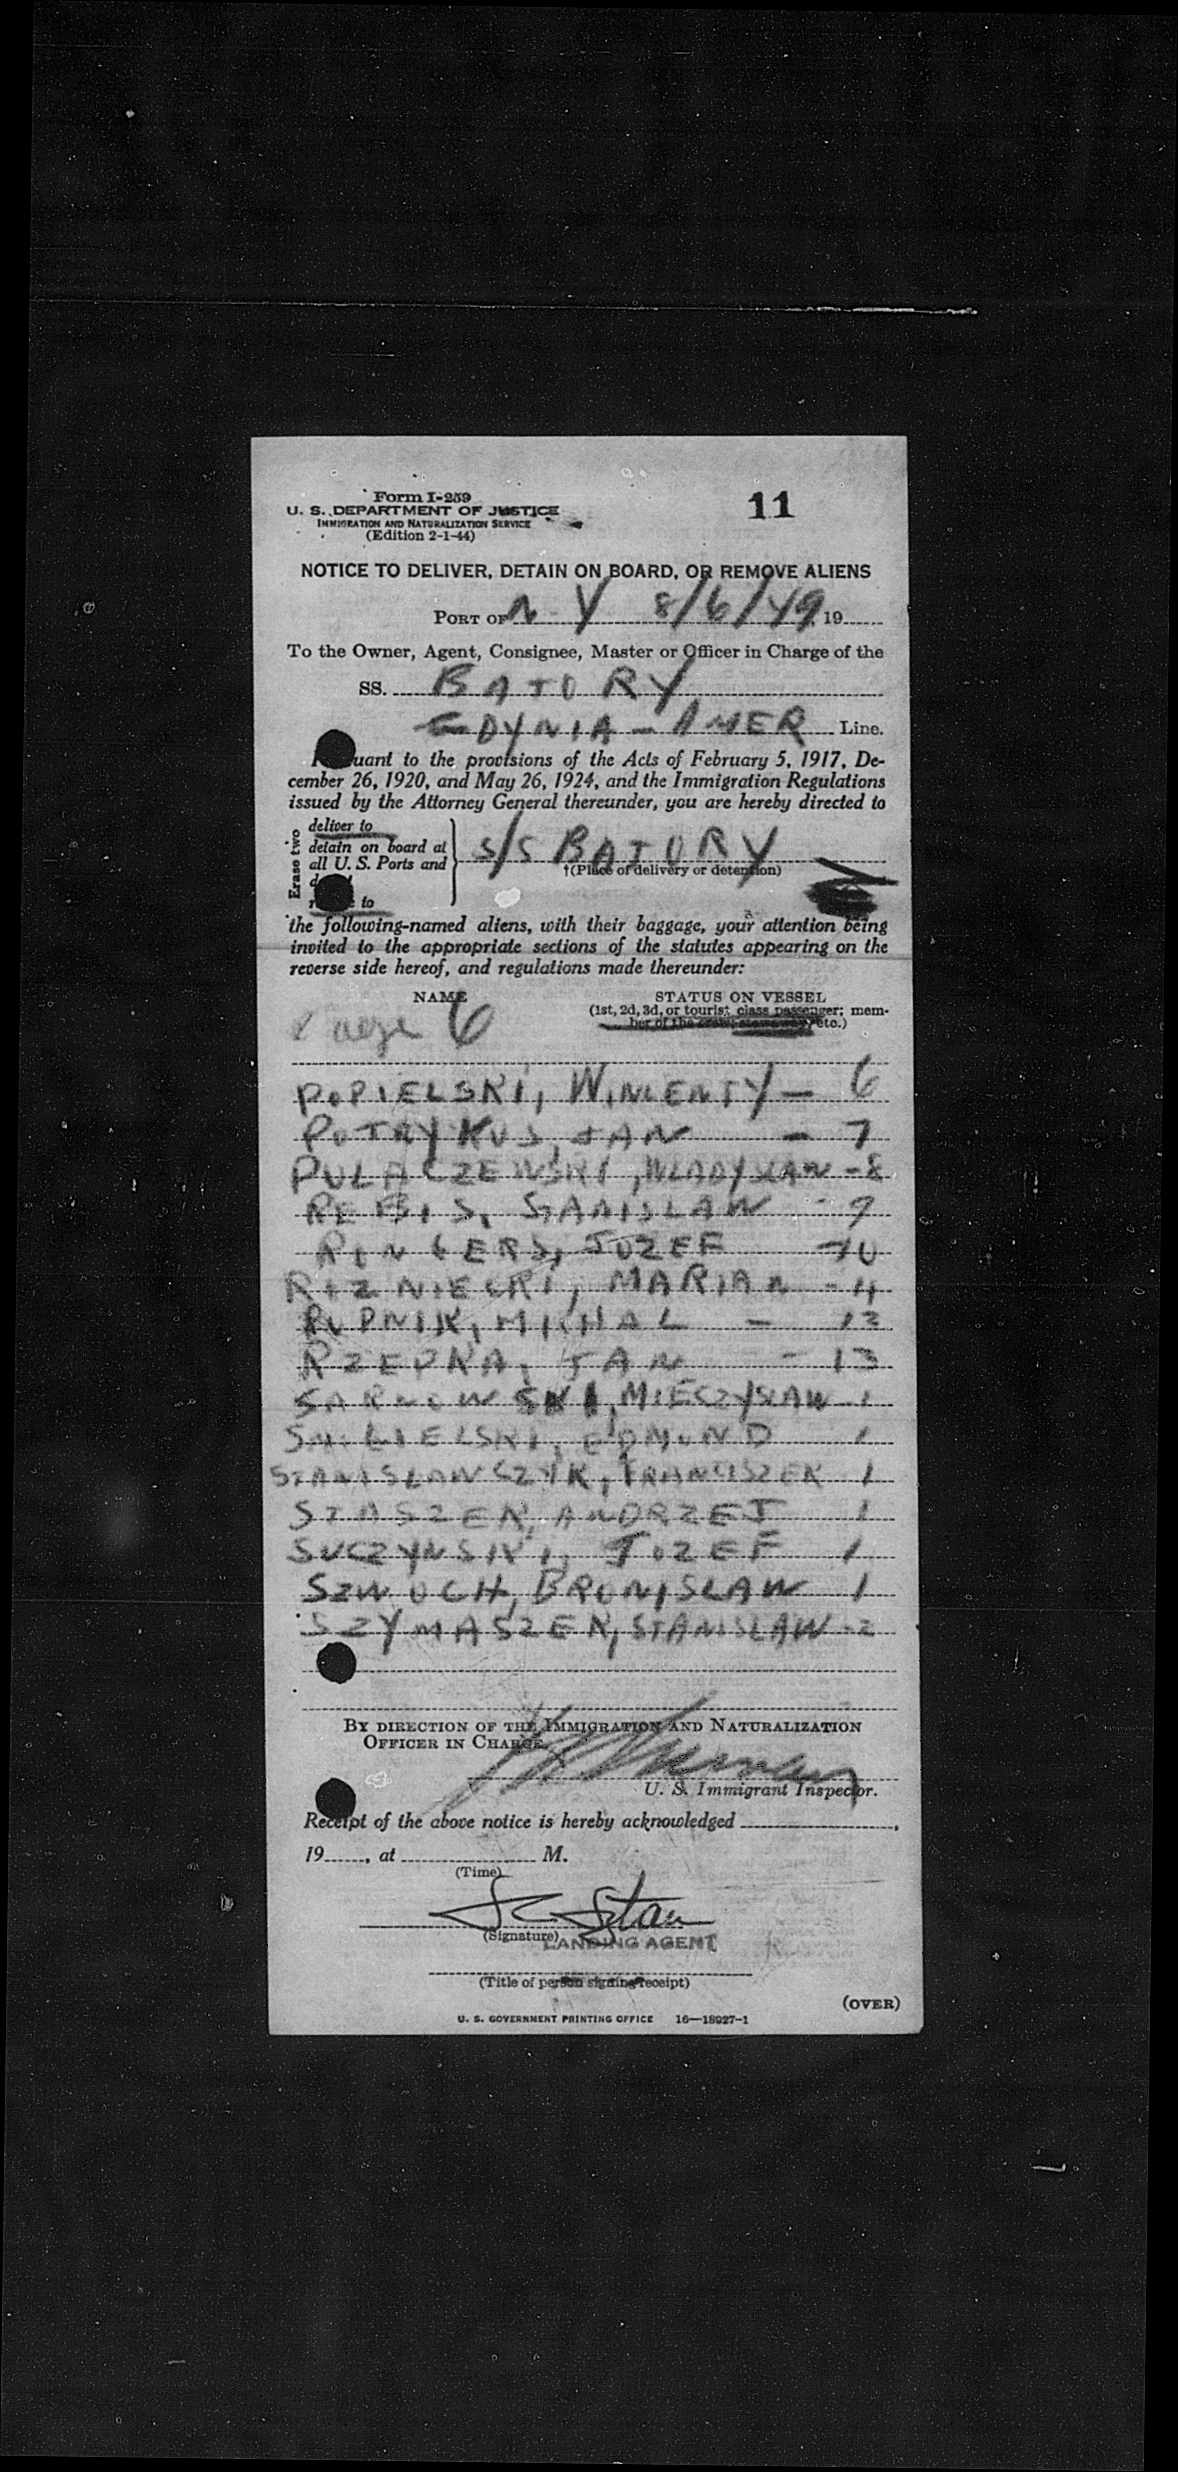 Form I-259
U. S. DEPARTMENT OF JUSTICE
IMMIGRATION AND NATURALIZATION SERVICE
(Edition 2-1-44)
11
NOTICE TO DELIVER, DETAIN ON BOARD, OR REMOVE ALIENS
PORT OF N Y 8/6/49 19
To the Owner, Agent, Consignee, Master or Officer in Charge of the
SS. BATORY
GDYNIA - AMER Line.
Pursuant to the provisions of the Acts of February 5, 1917, De-
cember 26, 1920, and May 26, 1924, and the Immigration Regulations
issued by the Attorney General thereunder, you are hereby directed to
Erase two
deliver to
detain on board at
all U. S. Ports and
to
S/S BATORY
†(Place of delivery or detention)
the following-named aliens, with their baggage, your attention being
invited to the appropriate sections of the statutes appearing on the
reverse side hereof, and regulations made thereunder:
NAME
STATUS ON VESSEL
(1st, 2d, 3d, or tourist class passenger; mem-
ber of the crew; stowaway; etc.)
Page 6
POPIELSKI, WINCENTY - 6
POTRYKUS, JAN - 7
PULACZEWSKI, WLADYSLAW - 8
REBIS, STANISLAW - 9
JOZEF - 10
MARIAN
RUPNIK, MICHAL - 12
RZEPKA, JAN - 13
SARNOWSKI, MIECZYSLAW - 1
EDMUND 1
STANISLAWCZYK, FRANCISZEK 1
STASZEK, ANDRZEJ 1
SUCZYNSKI, JOZEF 1
SZWOCH, BRONISLAW 1
SZYMASZEK, STANISLAW - 2
BY DIRECTION OF THE IMMIGRATION AND NATURALIZATION
OFFICER IN CHARGE,
U. S. Immigrant Inspector.
Receipt of the above notice is hereby acknowledged ,
19 , at M.
(Time)
(Signature)
LANDING AGENT
(Title of person signing receipt)
(OVER)
U. S. GOVERNMENT PRINTING OFFICE 16—18927-1